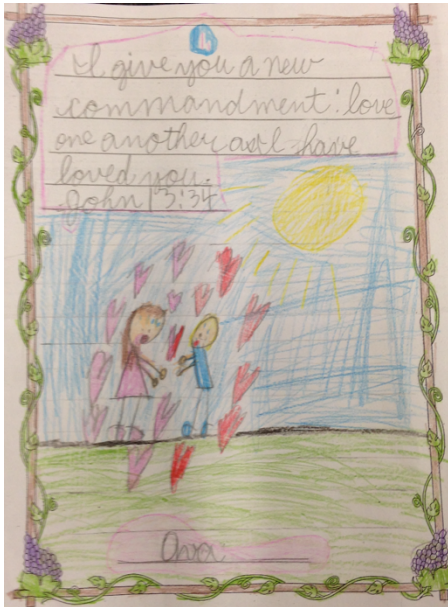 I give you a new
commandment: love
one another as I have
loved you.
John 13:34
Ava